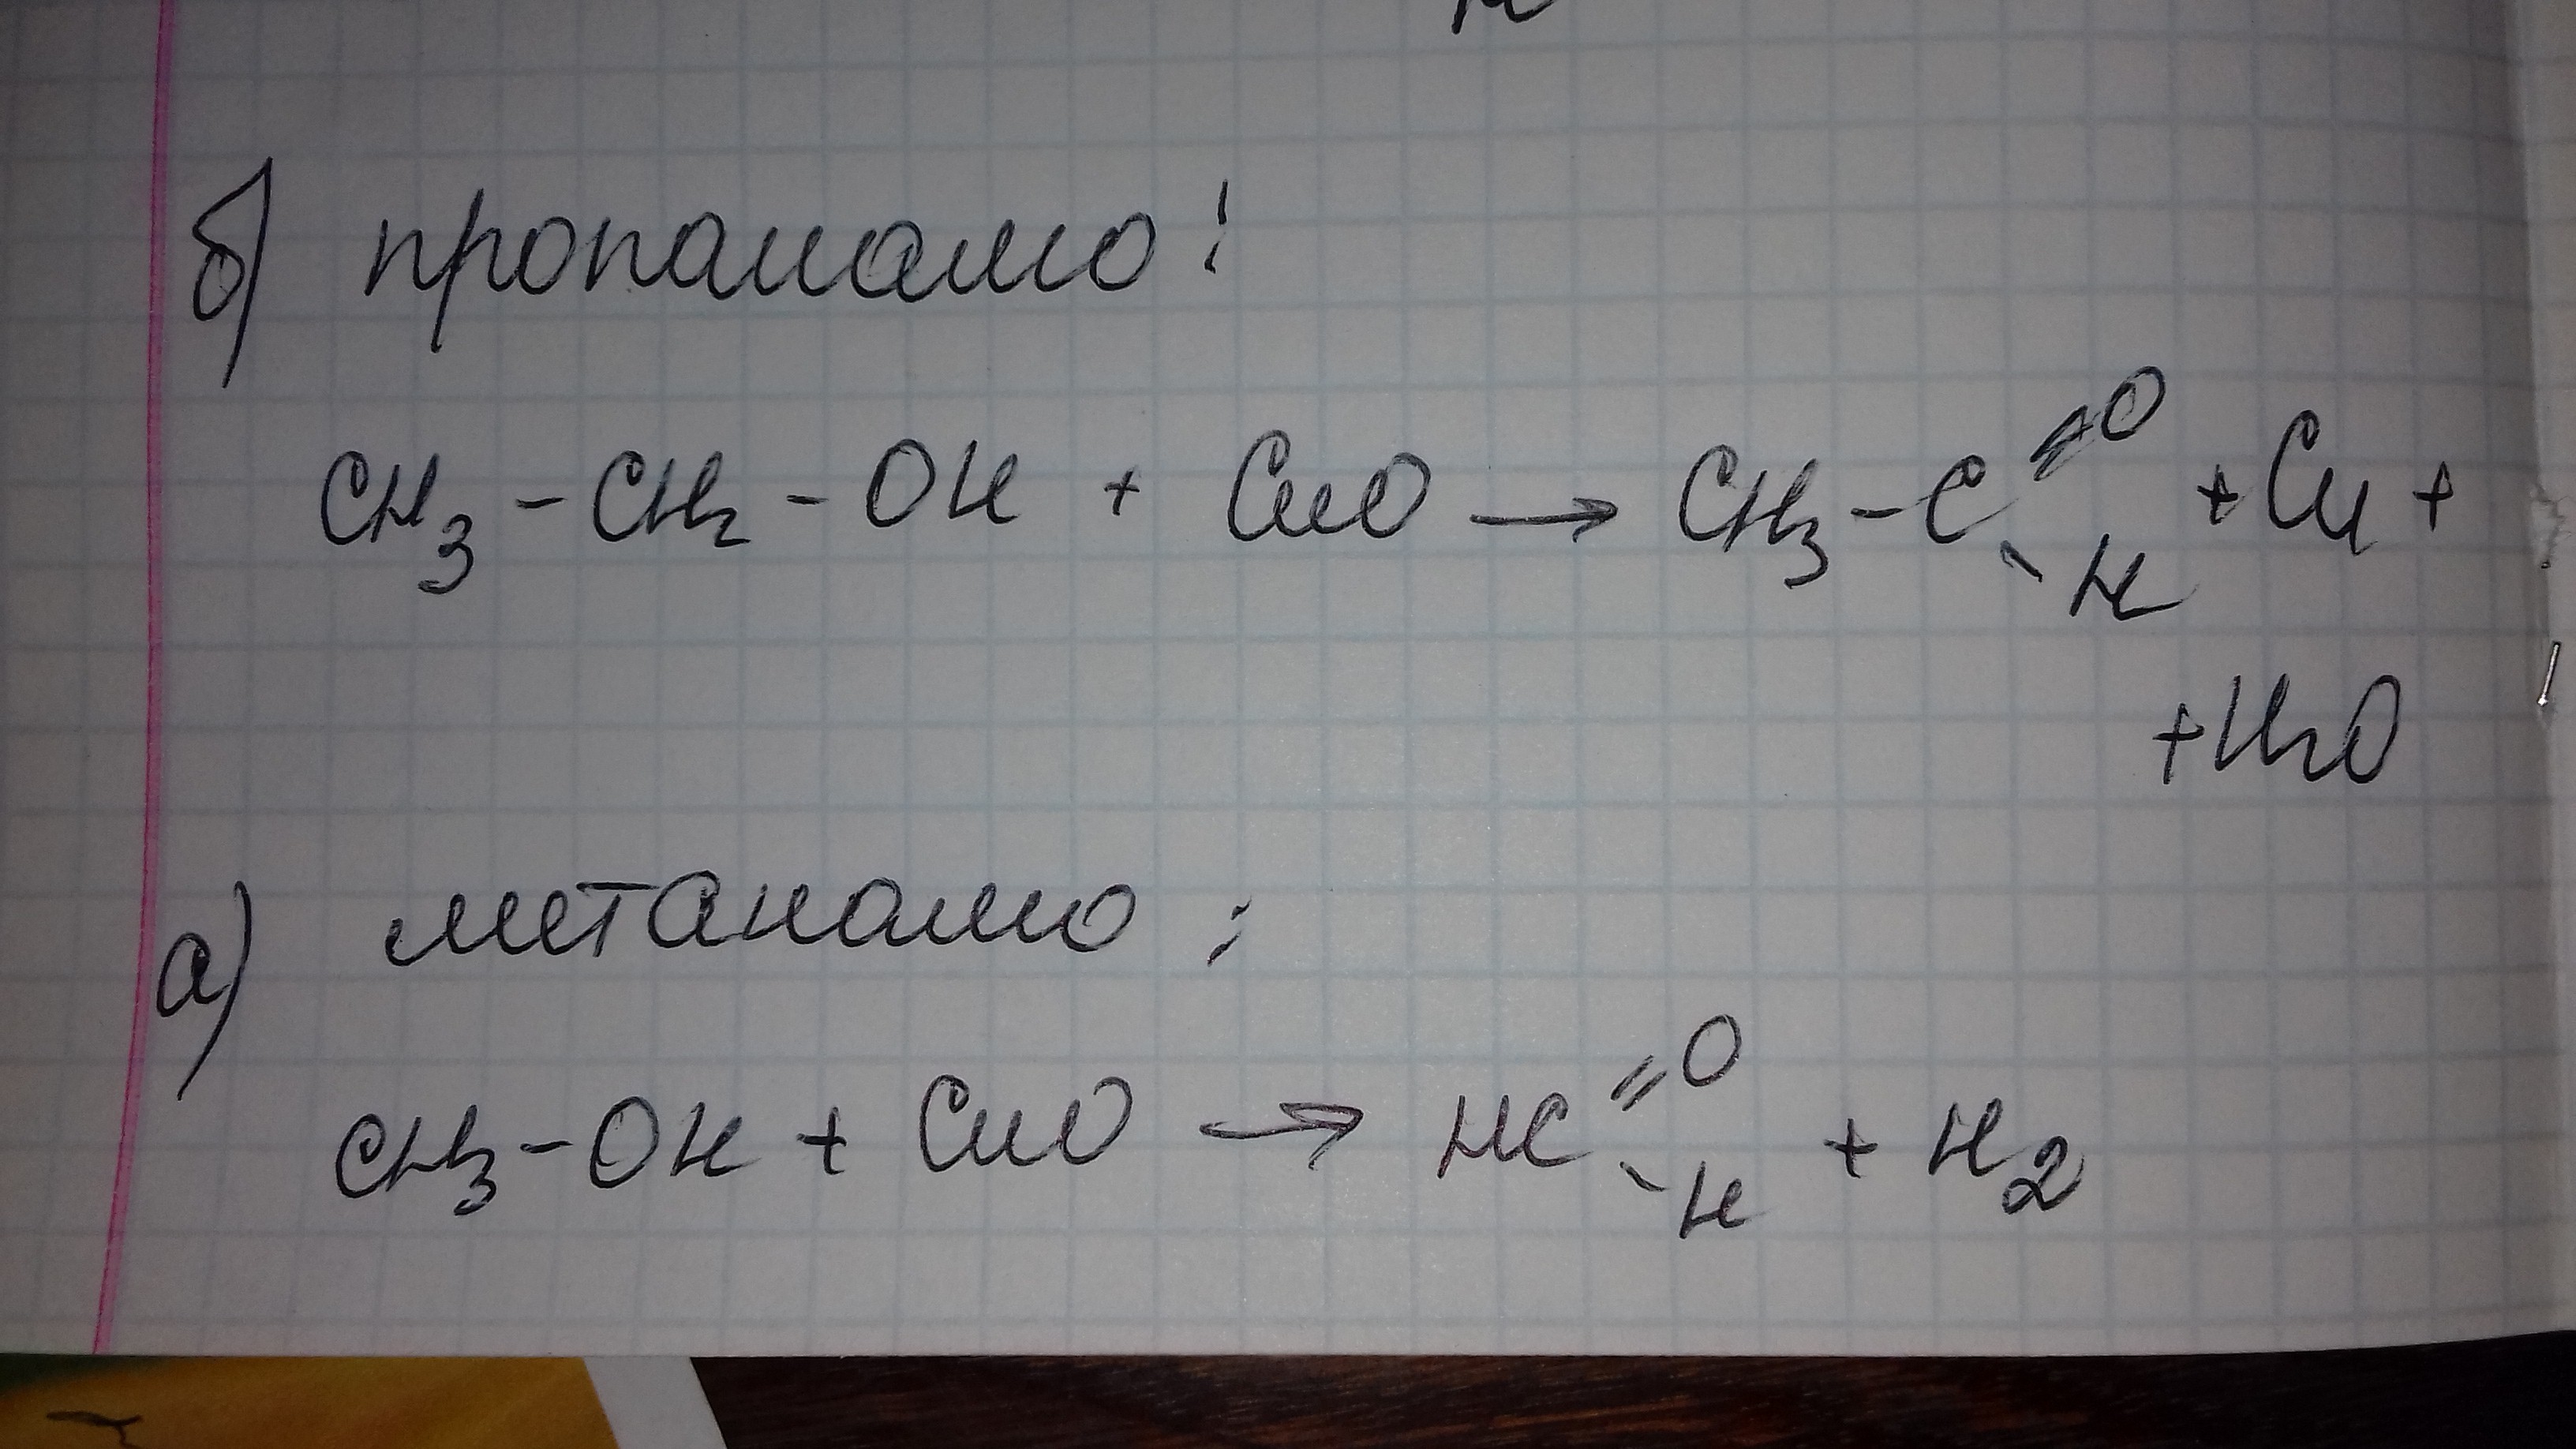 б) пропаналю:
CH3 - CH2 - OH + CuO → CH3 - C =O - H + Cu +
+ H2O
а) метаналю:
CH3 - OH + CuO → HC =O - H + H2